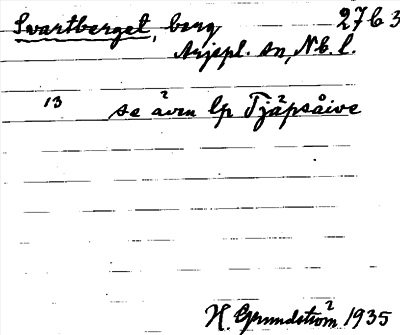 Svartberget, berg 27b3
Arjepl. sn, Nb. l.
13 se även lp Tjåpsåive
H. Grundström 1935